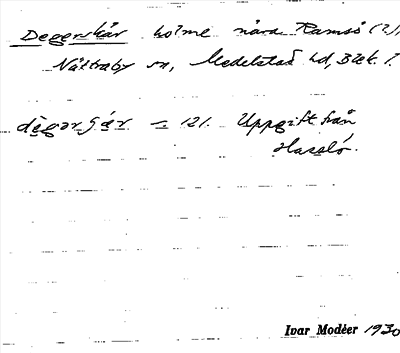 Degerskär holme nära Ramsö (?),
Nättraby sn, Medelstad hd, Blek. l.
dègərʃǽr = 121. Uppgift från
Hasslö.
Ivar Modéer 1930